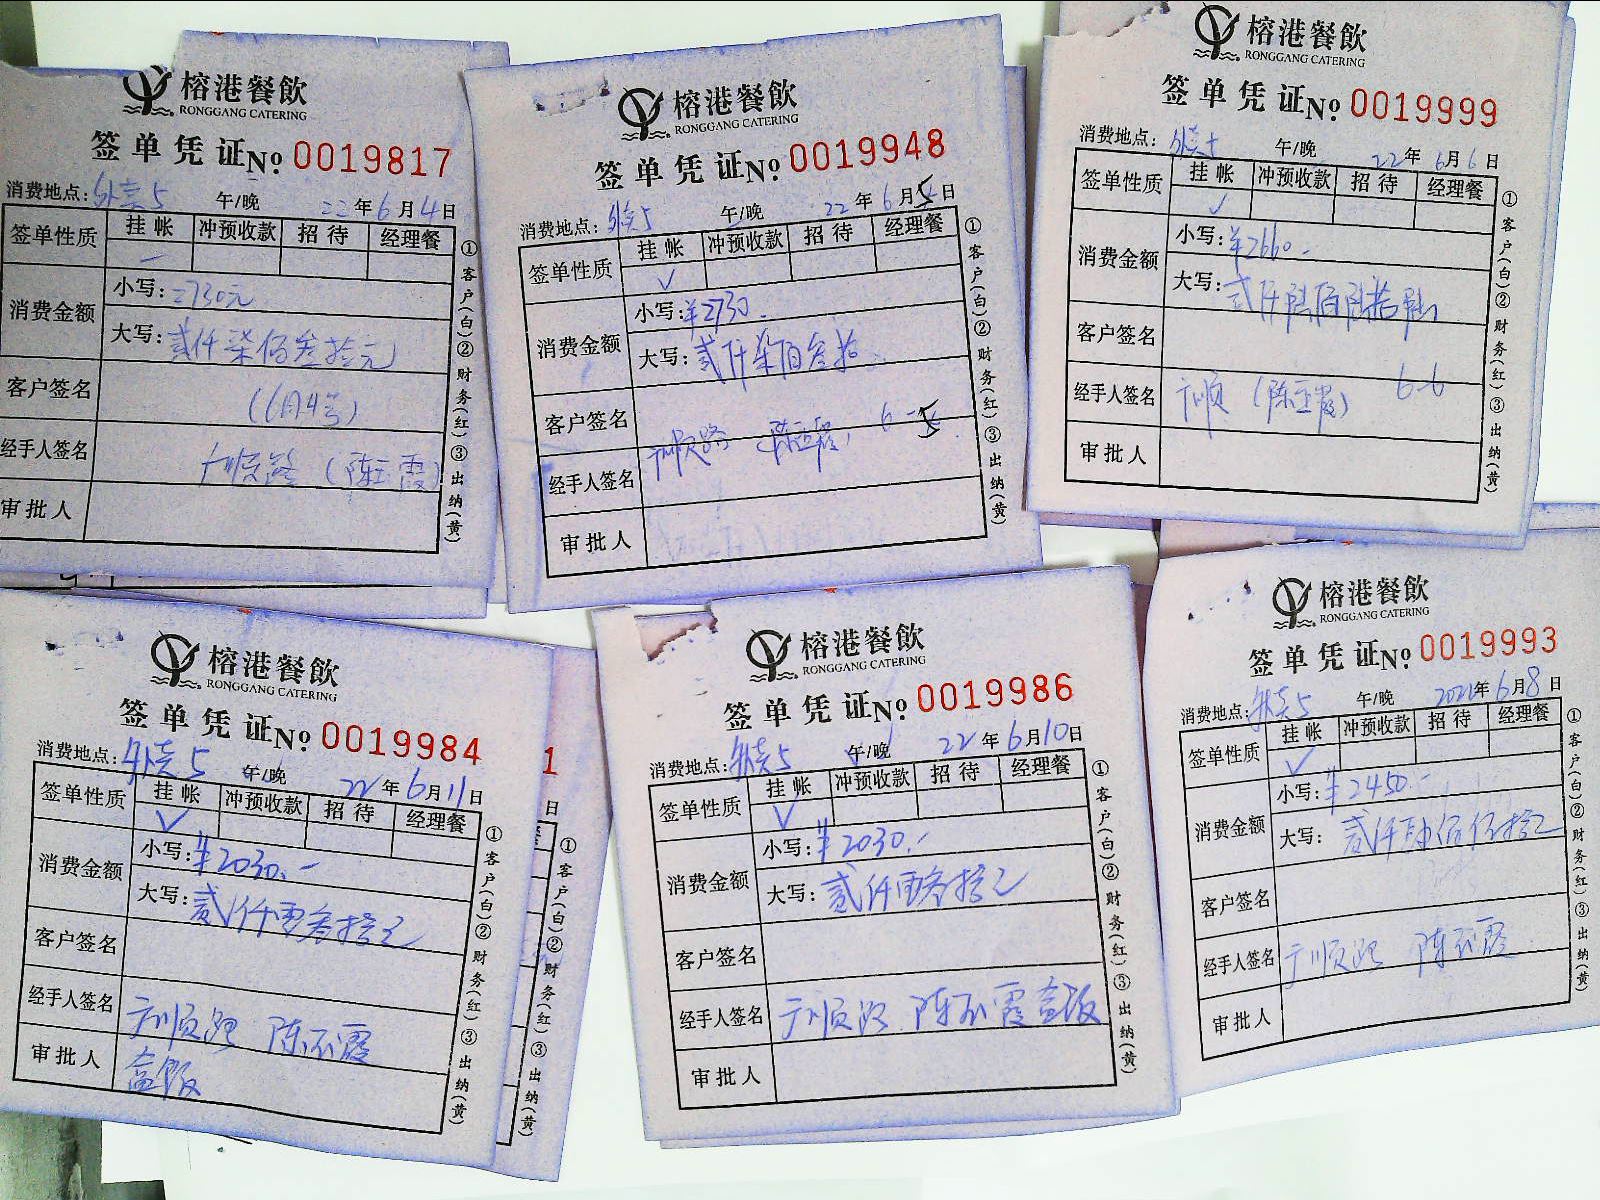 榕港餐飲
RONGGANG CATERING
签单凭证 No 0019817
消费地点: 外卖5 午/晚 22年6月4日
签单性质 挂帐 冲预收款 招待 经理餐
消费金额 小写: 2730元
大写: 贰仟柒佰叁拾元
客户签名 (6月4号)
经手人签名 广顺路 (陈玉霞)
审批人
①客户(白)②财务(红)③出纳(黄)
榕港餐飲
RONGGANG CATERING
签单凭证 No 0019948
消费地点: 外卖5 午/晚 22年6月5日
签单性质 挂帐 冲预收款 招待 经理餐
√
消费金额 小写: ¥2730.
大写: 贰仟柒佰叁拾
客户签名
经手人签名 广顺路 (陈玉霞) 6-5
审批人
①客户(白)②财务(红)③出纳(黄)
榕港餐飲
RONGGANG CATERING
签单凭证 No 0019999
消费地点: 外卖 午/晚 22年6月6日
签单性质 挂帐 冲预收款 招待 经理餐
√
消费金额 小写: ¥2660.-
大写: 贰仟陆佰陆拾
客户签名
经手人签名 广顺 (陈玉霞) 6-6
审批人
①客户(白)②财务(红)③出纳(黄)
榕港餐飲
RONGGANG CATERING
签单凭证 No 0019984
消费地点: 外卖5 午/晚 22年6月11日
签单性质 挂帐 冲预收款 招待 经理餐
√
消费金额 小写: ¥2030.-
大写: 贰仟零叁拾元
客户签名
经手人签名 广顺路 陈玉霞
审批人 盒饭
①客户(白)②财务(红)③出纳(黄)
1
日
①客户(白)②财务(红)③出纳(黄)
榕港餐飲
RONGGANG CATERING
签单凭证 No 0019986
消费地点: 外卖5 午/晚 22年6月10日
签单性质 挂帐 冲预收款 招待 经理餐
√
消费金额 小写: ¥2030.-
大写: 贰仟零叁拾元
客户签名
经手人签名 广顺路 陈玉霞盒饭
审批人
①客户(白)②财务(红)③出纳(黄)
榕港餐飲
RONGGANG CATERING
签单凭证 No 0019993
消费地点: 外卖5 午/晚 2022年6月8日
签单性质 挂帐 冲预收款 招待 经理餐
√
消费金额 小写: ¥2450.-
大写: 贰仟肆佰伍拾元
客户签名
经手人签名 广顺路 陈玉霞
审批人
①客户(白)②财务(红)③出纳(黄)